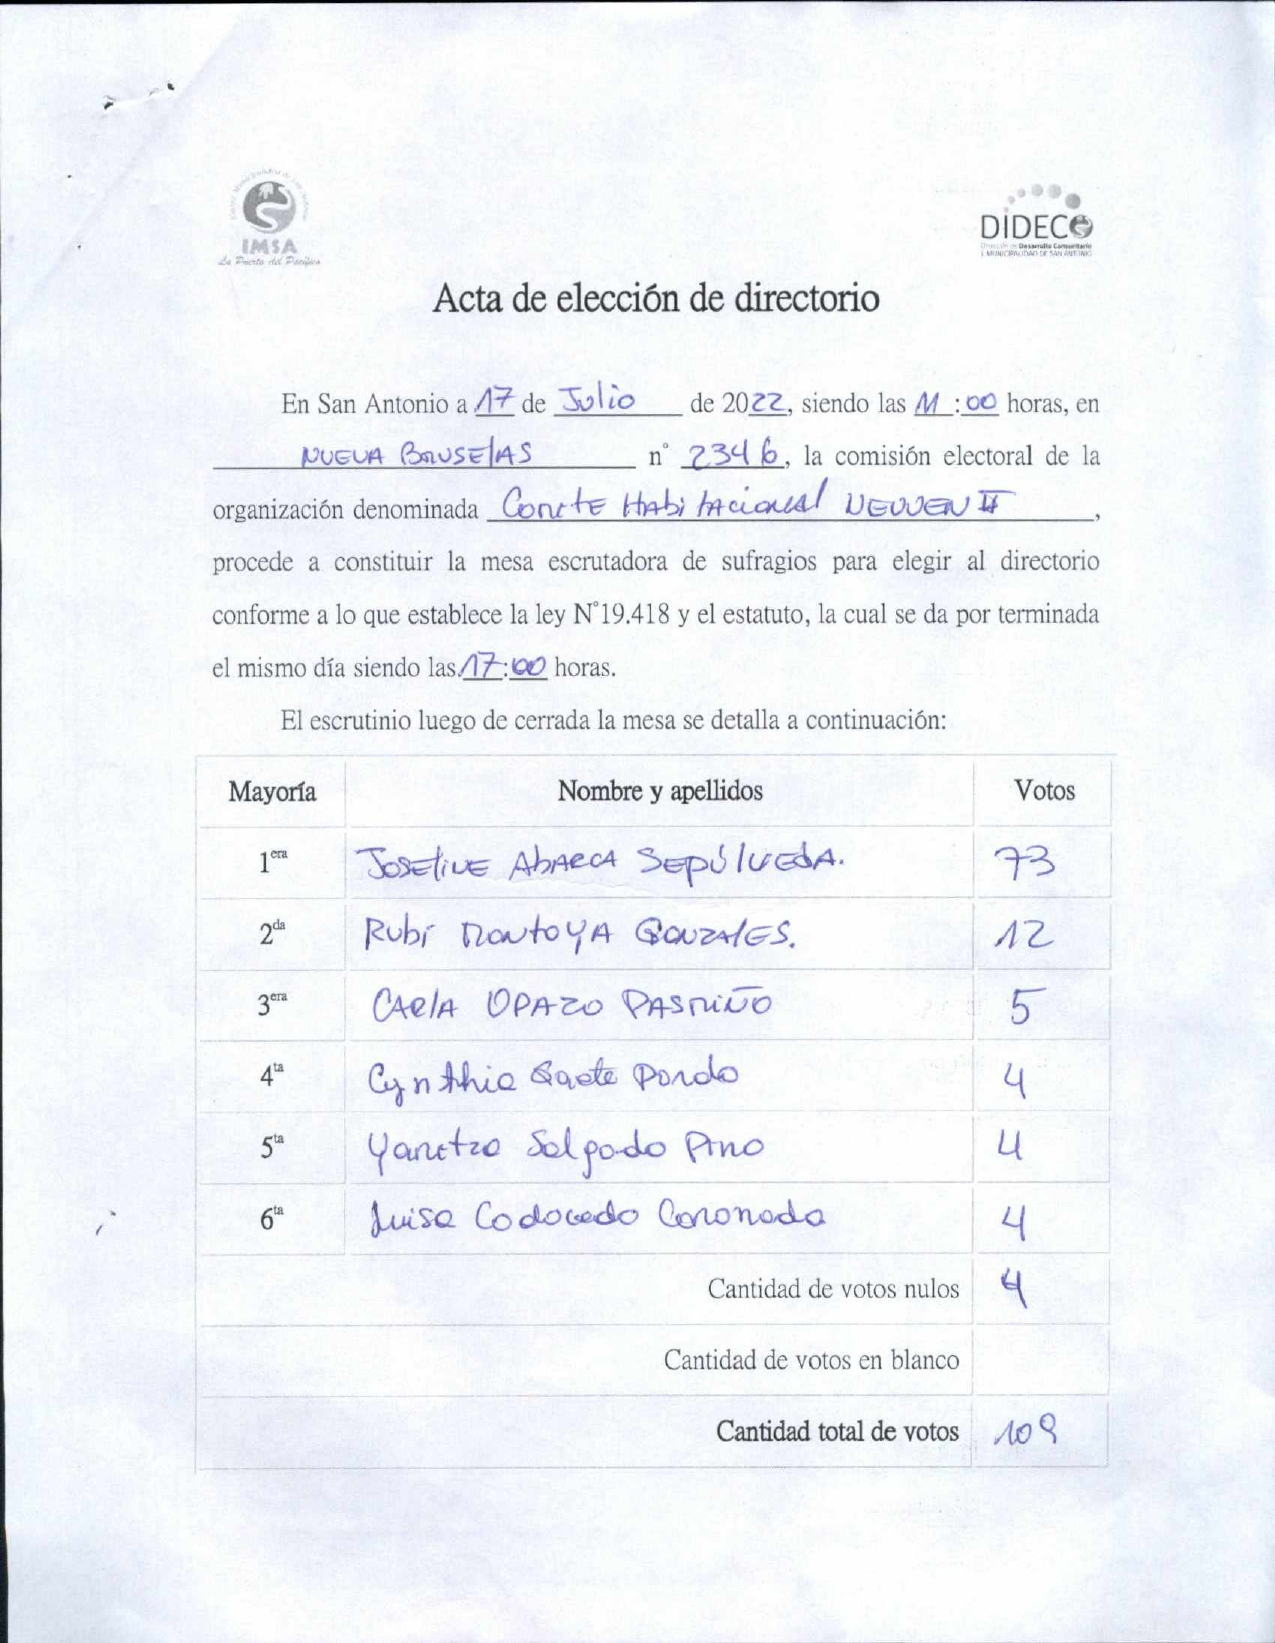 IMSA
La Puerta del Pacífico
DIDECO
Dirección de Desarrollo Comunitario
I. MUNICIPALIDAD DE SAN ANTONIO
Acta de elección de directorio
En San Antonio a 17 de Julio de 2022, siendo las 11:00 horas, en
NUEVA BRUSELAS n° 2346, la comisión electoral de la
organización denominada Comite Habitacional NEWEN II,
procede a constituir la mesa escrutadora de sufragios para elegir al directorio
conforme a lo que establece la ley N°19.418 y el estatuto, la cual se da por terminada
el mismo día siendo las 17:00 horas.
El escrutinio luego de cerrada la mesa se detalla a continuación:
Mayoría Nombre y apellidos Votos
1era Joseline Abarca Sepúlveda. 73
2da Rubí Montoya Gonzales. 12
3era Carla Opazo Pasmiño 5
4ta Cynthia Gaete Pardo 4
5ta Yanetza Salgado Pino 4
6ta Luisa Codocedo Coronada 4
Cantidad de votos nulos 4
Cantidad de votos en blanco
Cantidad total de votos 109